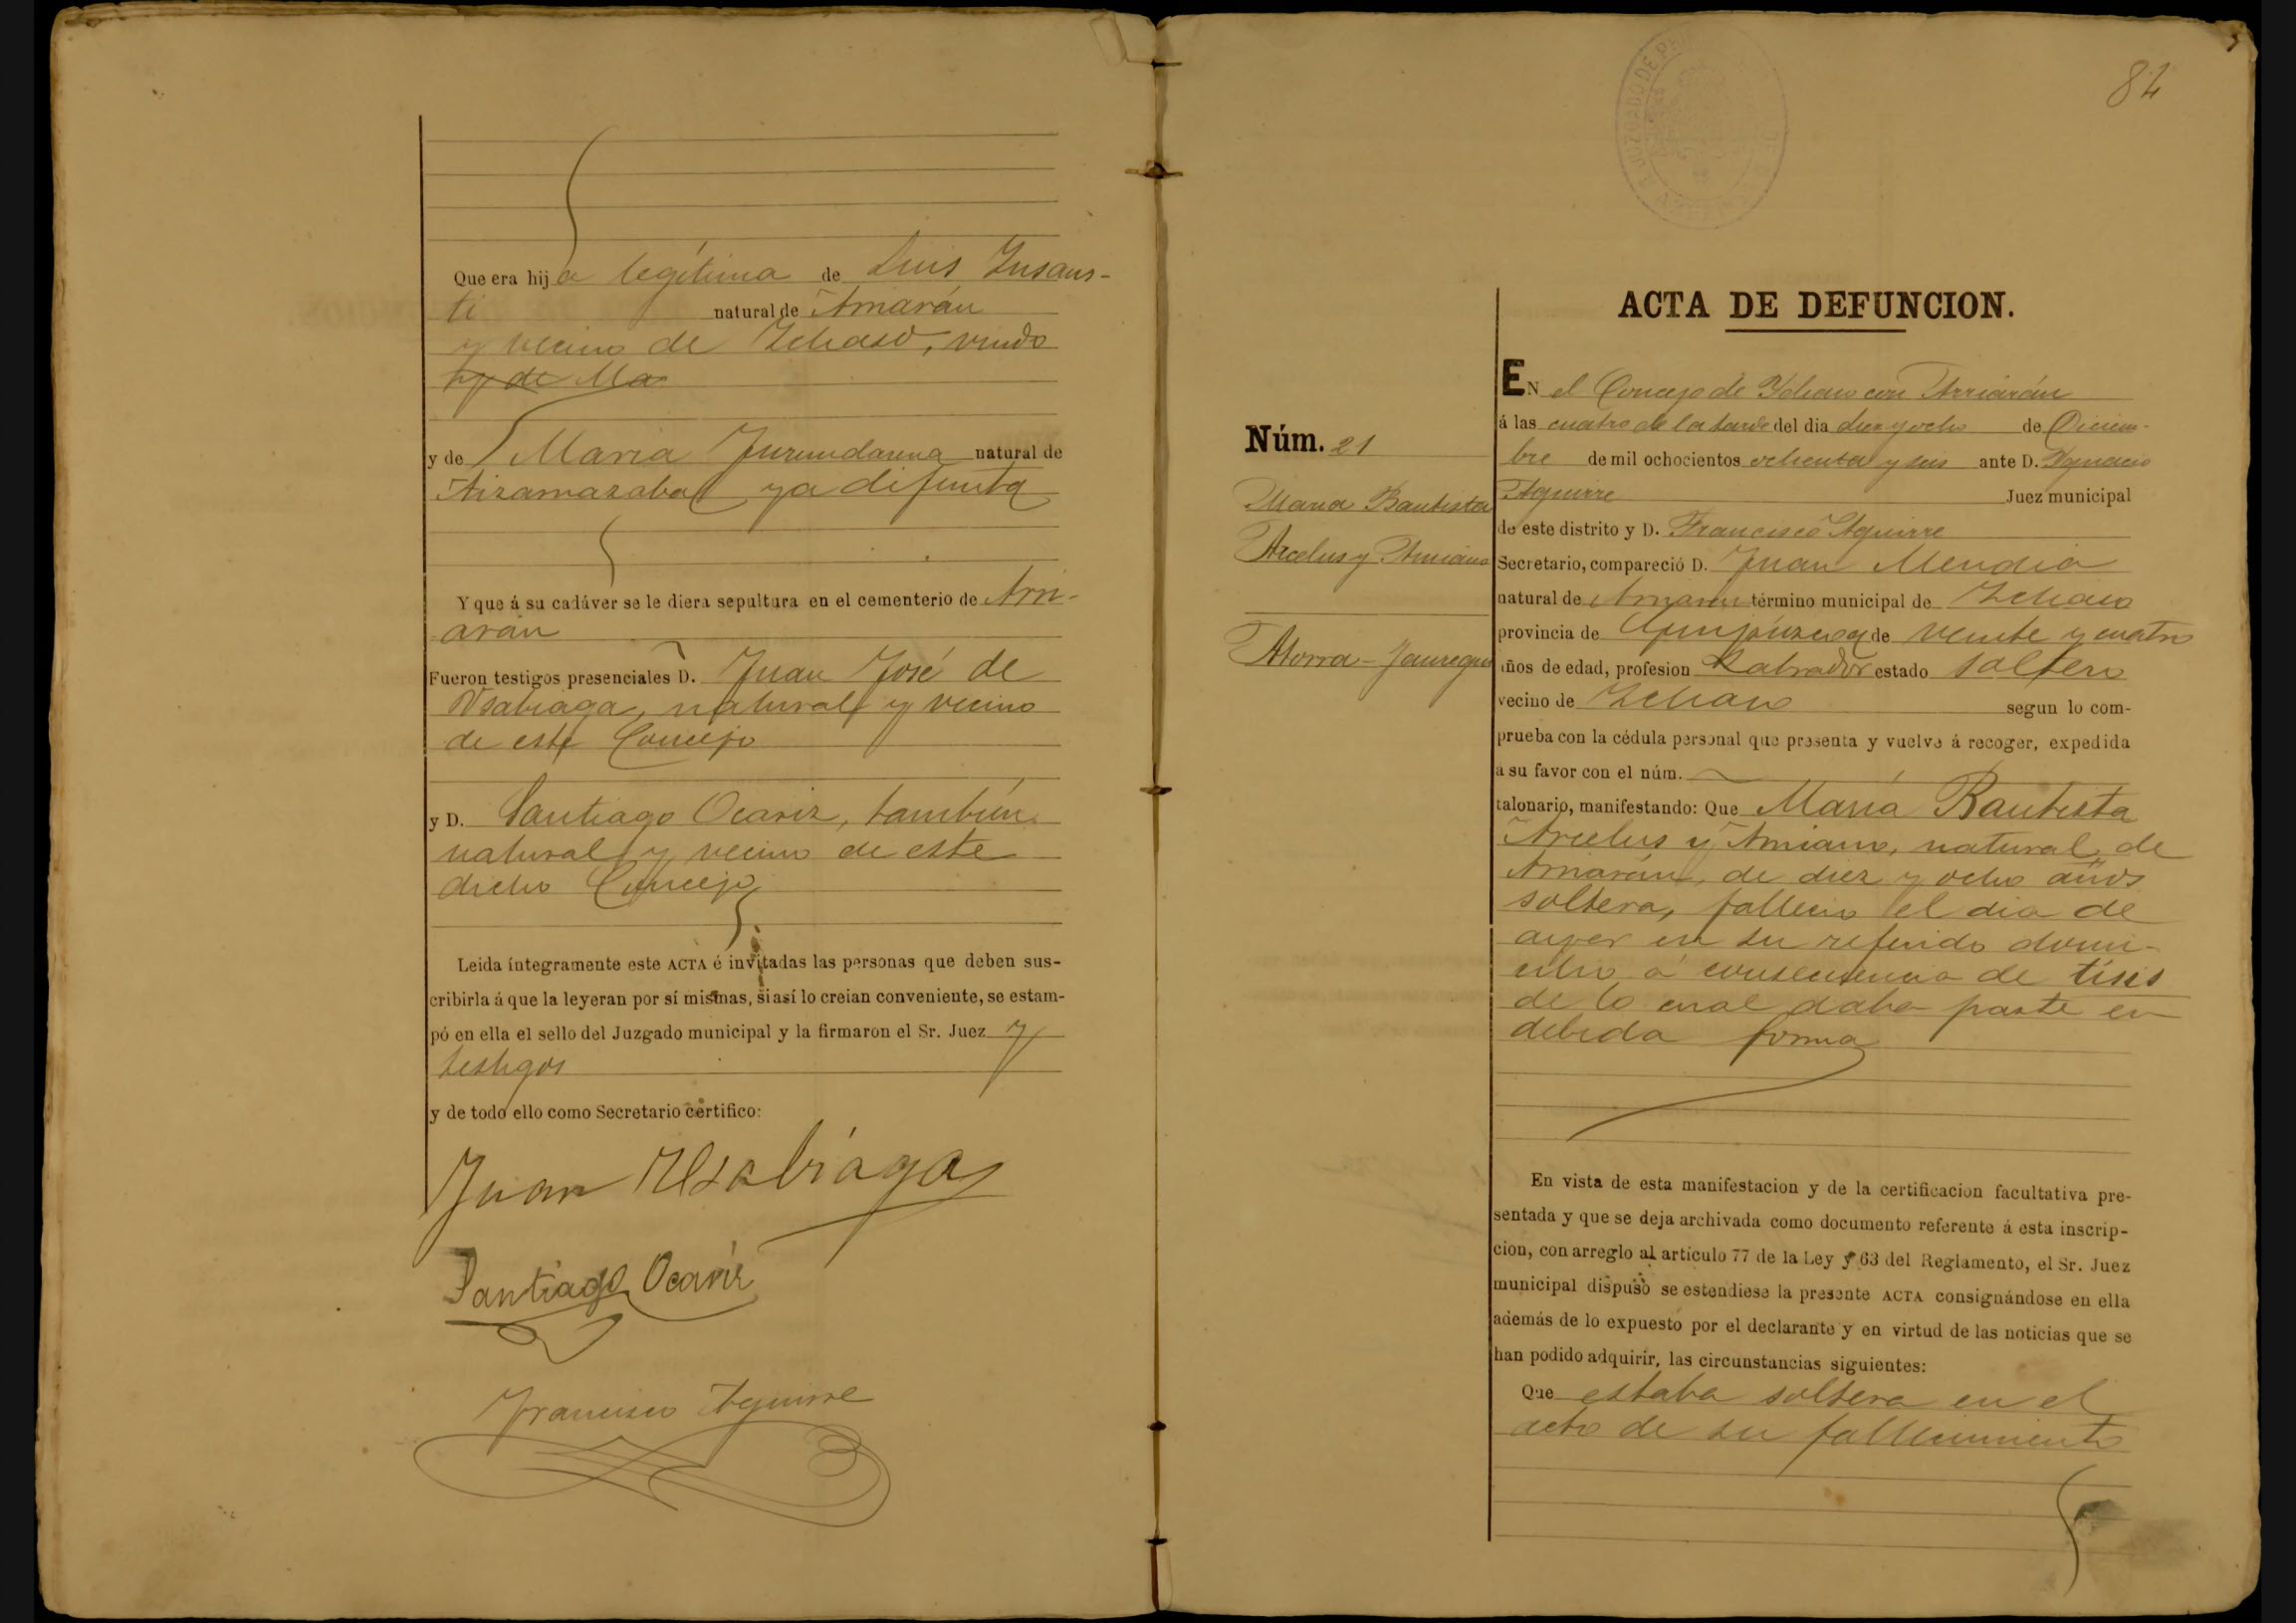 Que era hija legítima de Luis Insaus-
ti natural de Arriarán
y vecino de Ichaso, viudo
y de Ma
y de María Jurundarena natural de
ya difunta
Y que á su cadáver se le diera sepultura en el cementerio de Arri-
arán
Fueron testigos presenciales D. Juan José de
Usabiaga, natural y vecino
de este Concejo
y D. Santiago Ocariz, también
natural y vecino de este
dicho Concejo
Leida íntegramente este ACTA é invitadas las personas que deben sus-
cribirla á que la leyeran por sí mismas, si así lo creian conveniente, se estam-
pó en ella el sello del Juzgado municipal y la firmaron el Sr. Juez y
testigos
y de todo ello como Secretario certifico:
Juan Usabiaga
Santiago Ocariz
Francisco Aguirre
82
JUZGADO DE
ACTA DE DEFUNCION.
Núm. 21
Maria Bautista
Arcelus y Amiano
Jauregui
EN el Concejo de Ichaso con Arriarán
á las cuatro de la tarde del dia diez y ocho de Diciem-
bre de mil ochocientos ochenta y seis ante D. Ygnacio
Aguirre Juez municipal
de este distrito y D. Francisco Aguirre
Secretario, compareció D. Juan Mendia
natural de Arriaran término municipal de Ichaso
provincia de Guipúzcoa de veinte y cuatro
años de edad, profesion Labrador estado soltero
vecino de Ichaso segun lo com-
prueba con la cédula personal que presenta y vuelve á recoger, expedida
a su favor con el núm.
talonario, manifestando: Que María Bautista
Arcelus y Amiano, natural de
Arriarán, de diez y ocho años
soltera, falleció el dia de
ayer en su referido domi-
cilio á consecuencia de tisis
de lo cual daba parte en
debida forma
En vista de esta manifestacion y de la certificacion facultativa pre-
sentada y que se deja archivada como documento referente á esta inscrip-
cion, con arreglo al artículo 77 de la Ley y 63 del Reglamento, el Sr. Juez
municipal dispuso se estendiese la presente ACTA consignándose en ella
además de lo expuesto por el declarante y en virtud de las noticias que se
han podido adquirir, las circunstancias siguientes:
Que estaba soltera en el
acto de su fallecimiento